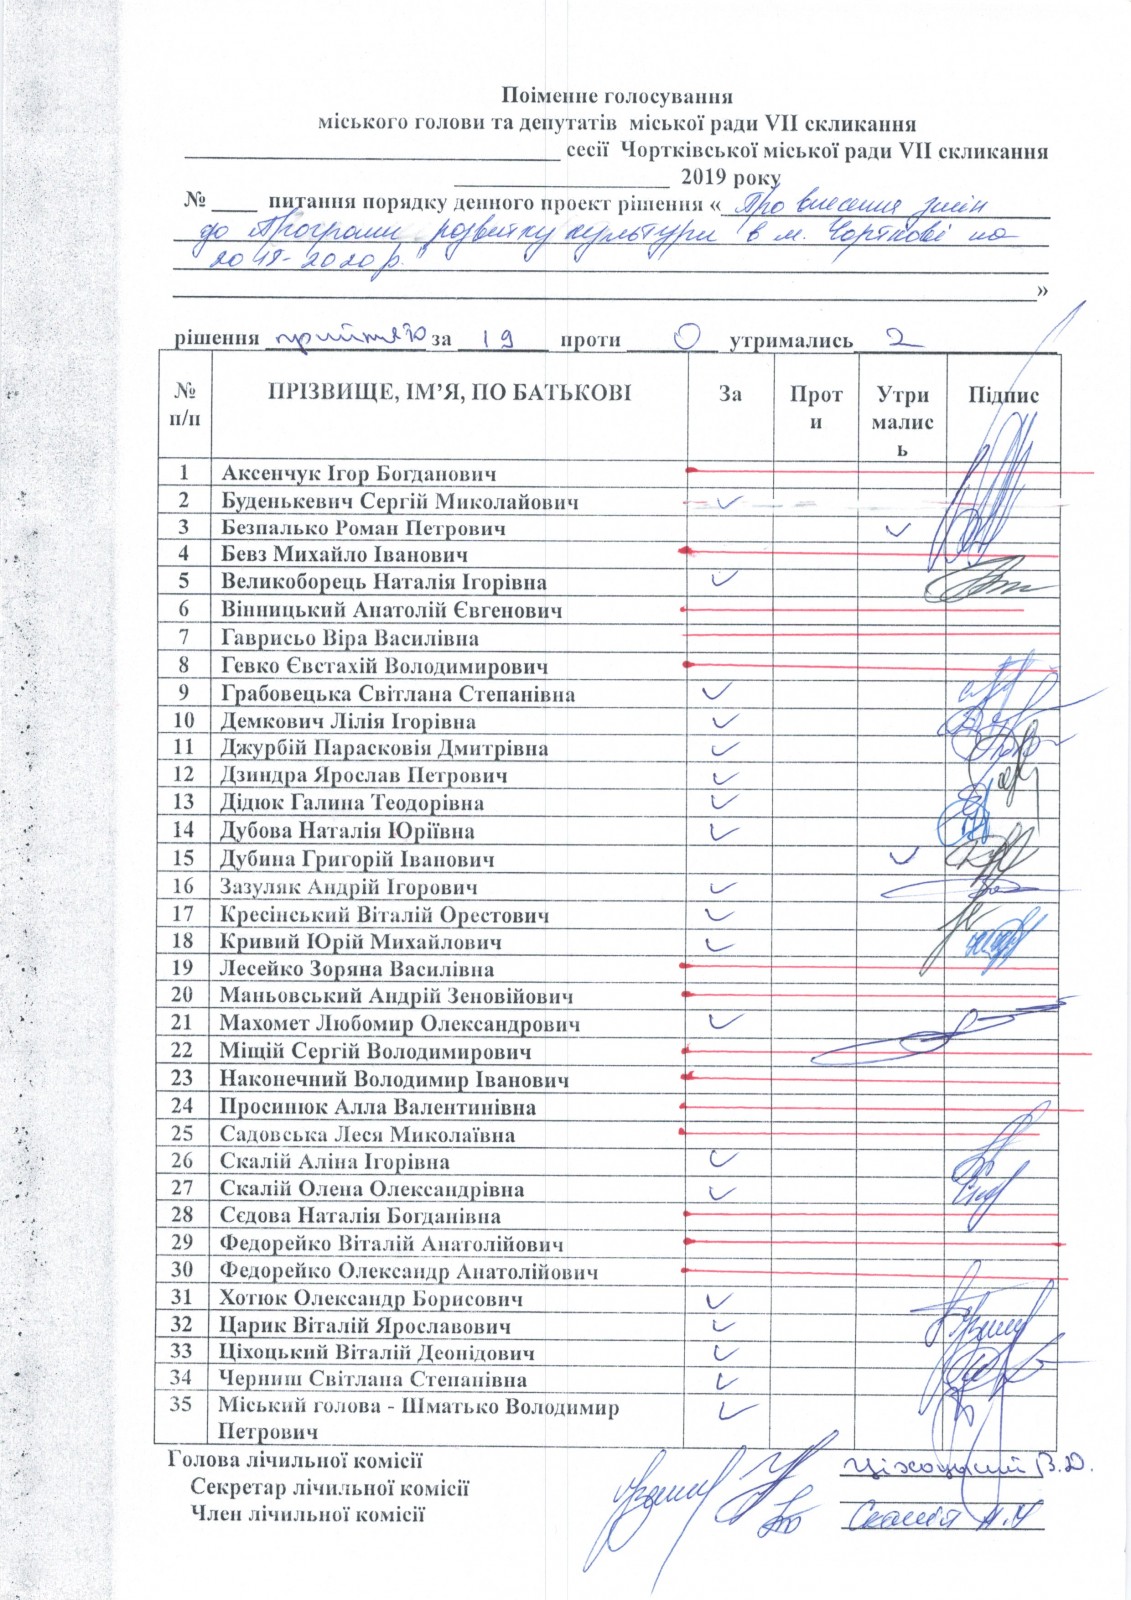 Поіменне голосування
міського голови та депутатів міської ради VII скликання
сесії Чортківської міської ради VII скликання
2019 року
№ ____ питання порядку денного проект рішення « Про внесення змін
до Програми розвитку культури в м. Чорткові на
2018-2020 р.
»
рішення прийнято за 19 проти 0 утримались 2
№ п/п ПРІЗВИЩЕ, ІМ’Я, ПО БАТЬКОВІ За Проти УтрималисЬ Підпис
1 Аксенчук Ігор Богданович
2 Буденькевич Сергій Миколайович
3 Безпалько Роман Петрович
4 Бевз Михайло Іванович
5 Великоборець Наталія Ігорівна
6 Вінницький Анатолій Євгенович
7 Гаврисьо Віра Василівна
8 Гевко Євстахій Володимирович
9 Грабовецька Світлана Степанівна
10 Демкович Лілія Ігорівна
11 Джурбій Парасковія Дмитрівна
12 Дзиндра Ярослав Петрович
13 Дідюк Галина Теодорівна
14 Дубова Наталія Юріївна
15 Дубина Григорій Іванович
16 Зазуляк Андрій Ігорович
17 Кресінський Віталій Орестович
18 Кривий Юрій Михайлович
19 Лесейко Зоряна Василівна
20 Маньовський Андрій Зеновійович
21 Махомет Любомир Олександрович
22 Міщій Сергій Володимирович
23 Наконечний Володимир Іванович
24 Просинюк Алла Валентинівна
25 Садовська Леся Миколаївна
26 Скалій Аліна Ігорівна
27 Скалій Олена Олександрівна
28 Сєдова Наталія Богданівна
29 Федорейко Віталій Анатолійович
30 Федорейко Олександр Анатолійович
31 Хотюк Олександр Борисович
32 Царик Віталій Ярославович
33 Ціхоцький Віталій Деонідович
34 Черниш Світлана Степанівна
35 Міський голова - Шматько Володимир
Петрович
Голова лічильної комісії Ціхоцький В.Д.
Секретар лічильної комісії
Член лічильної комісії